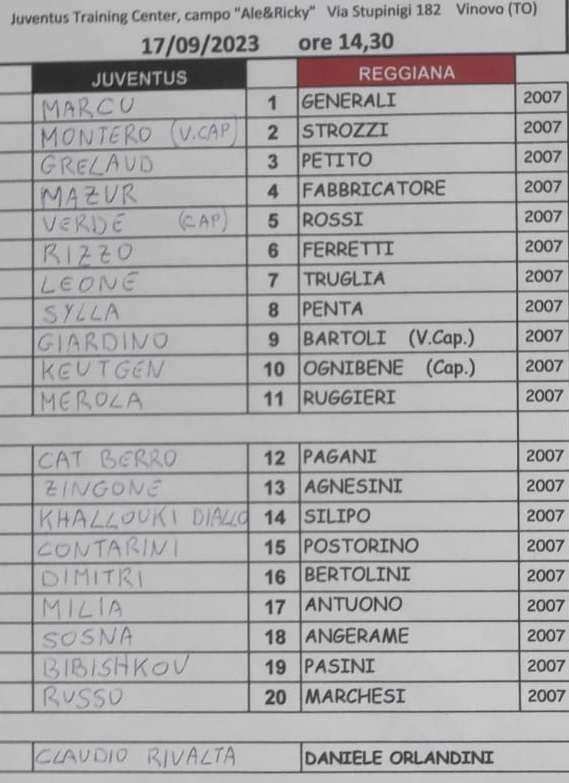 Juventus Training Center, campo "Ale&Ricky" Via Stupinigi 182 Vinovo (TO)
17/09/2023 ore 14,30
JUVENTUS REGGIANA
MARCU 1 GENERALI 2007
MONTERO (V.CAP) 2 STROZZI 2007
GRELAUD 3 PETITO 2007
MAZUR 4 FABBRICATORE 2007
VERDE (CAP) 5 ROSSI 2007
RIZZO 6 FERRETTI 2007
LEONE 7 TRUGLIA 2007
SYLLA 8 PENTA 2007
GIARDINO 9 BARTOLI (V.Cap.) 2007
KEUTGEN 10 OGNIBENE (Cap.) 2007
MEROLA 11 RUGGIERI 2007
CAT BERRO 12 PAGANI 2007
ZINGONE 13 AGNESINI 2007
KHALLOUKI DIALLO 14 SILIPO 2007
CONTARINI 15 POSTORINO 2007
DIMITRI 16 BERTOLINI 2007
MILIA 17 ANTUONO 2007
SOSNA 18 ANGERAME 2007
BIBISHKOV 19 PASINI 2007
RUSSO 20 MARCHESI 2007
CLAUDIO RIVALTA DANIELE ORLANDINI